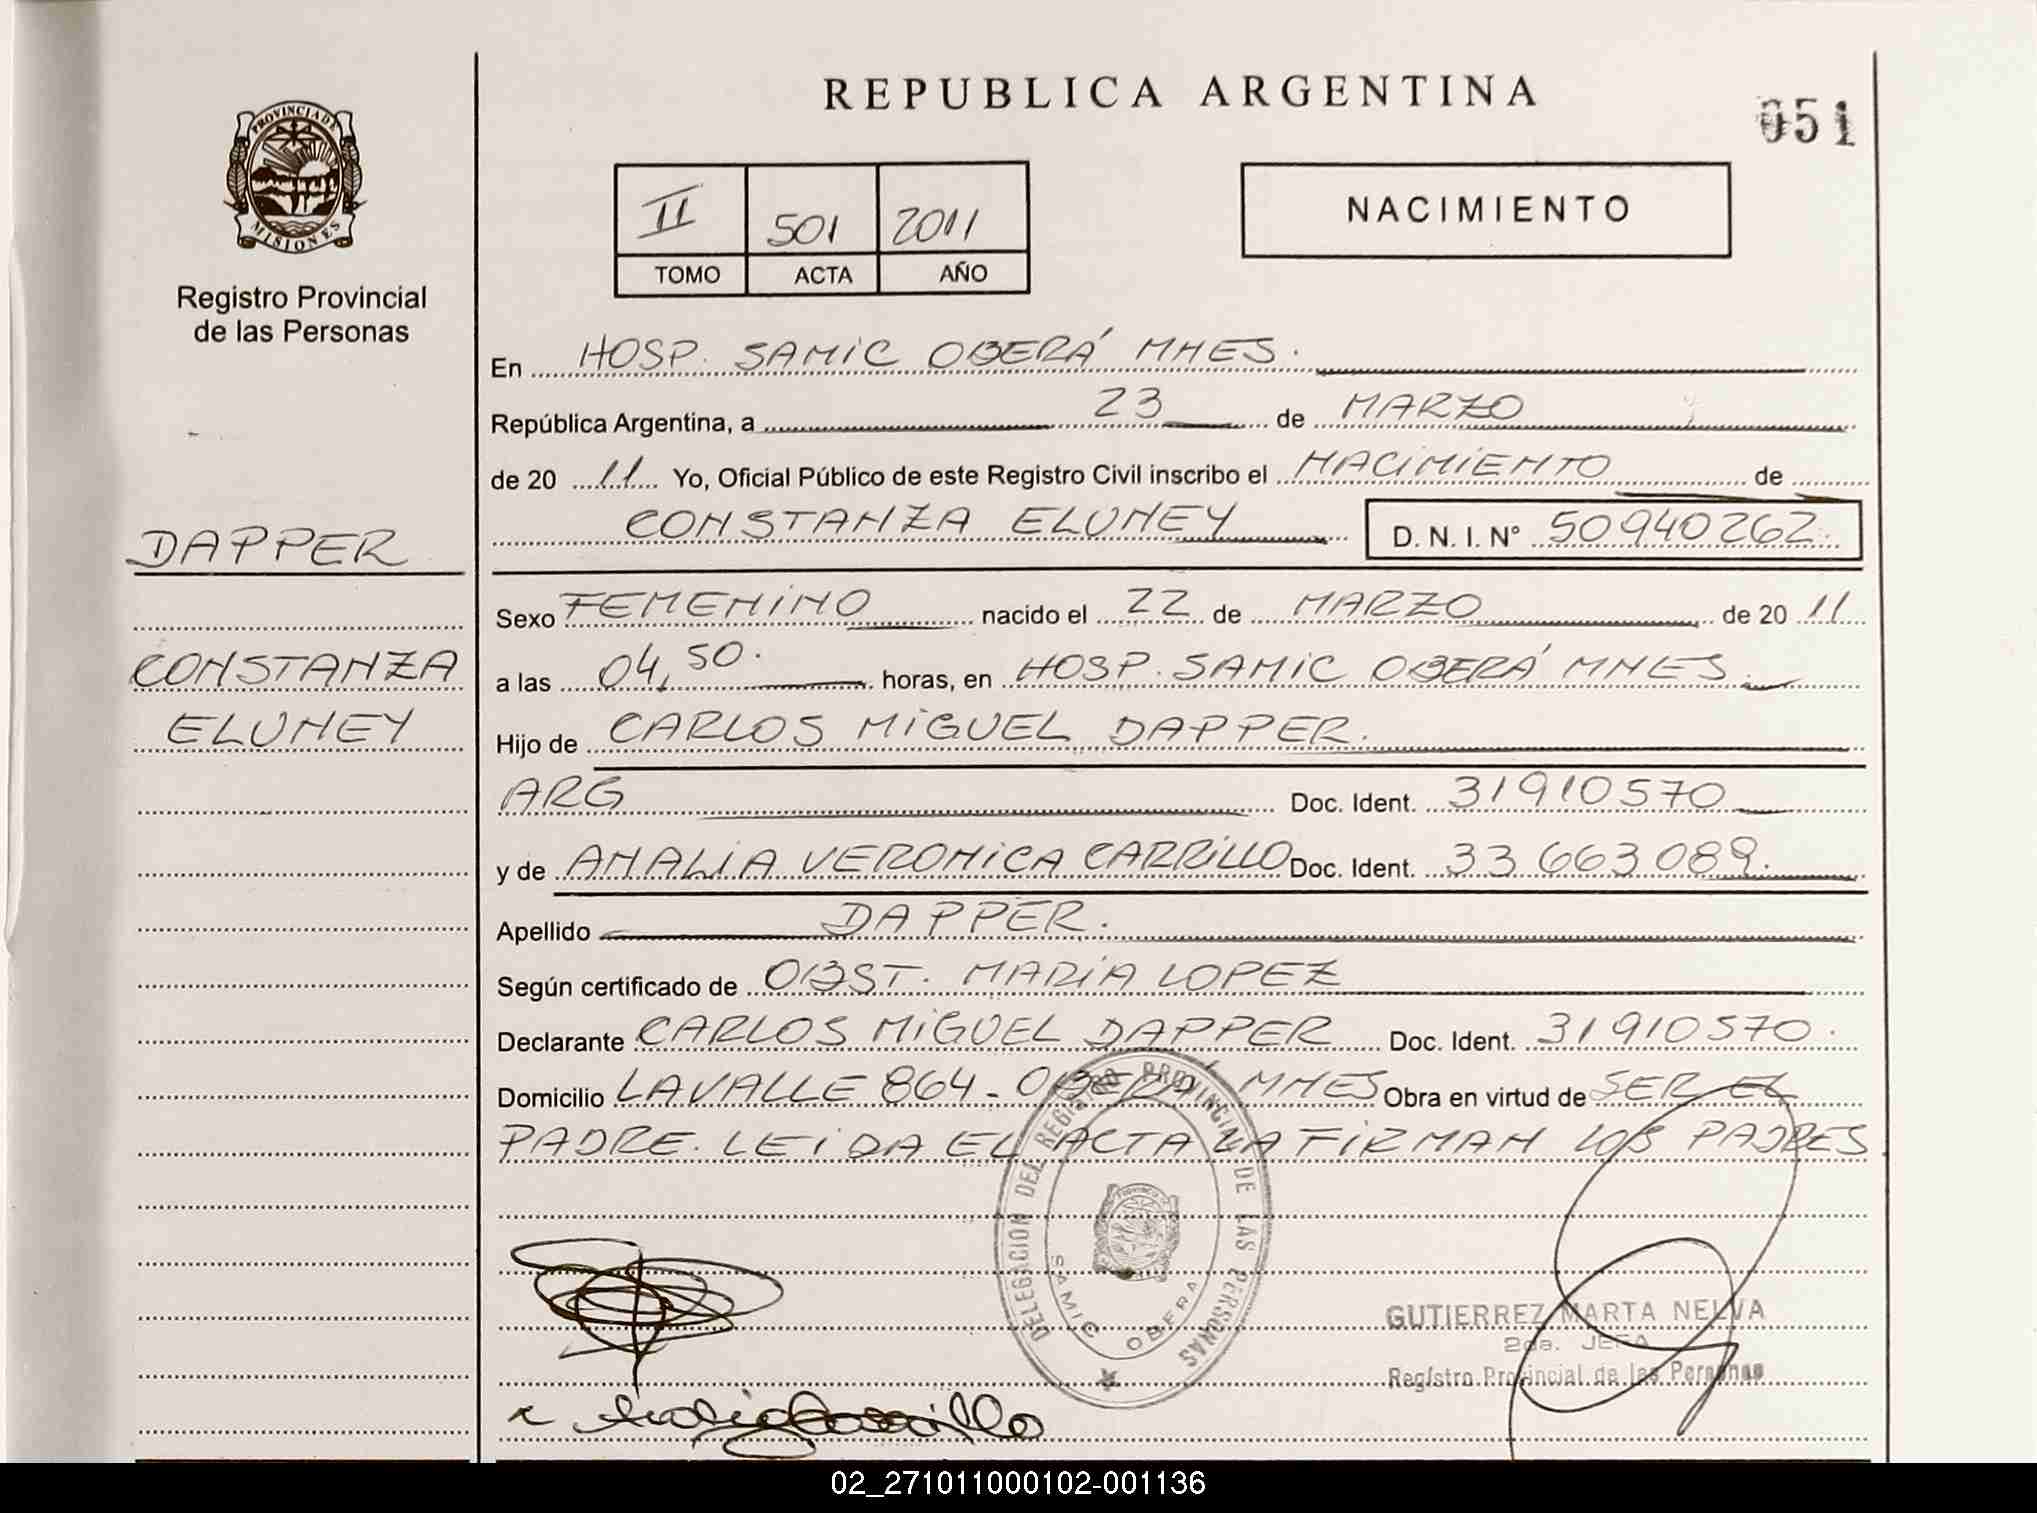 REPUBLICA ARGENTINA
051
PROVINCIA DE
MISIONES
Registro Provincial
de las Personas
II 501 2011
TOMO ACTA AÑO
NACIMIENTO
En HOSP. SAMIC OBERÁ MNES.
República Argentina, a 23 de MARZO
de 20 11 Yo, Oficial Público de este Registro Civil inscribo el NACIMIENTO de
CONSTANZA ELUNEY D. N. I. N° 50940262.
DAPPER
CONSTANZA
ELUNEY
Sexo FEMENINO nacido el 22 de MARZO de 20 11
a las 04,50. horas, en HOSP. SAMIC OBERÁ MNES.
Hijo de CARLOS MIGUEL DAPPER.
ARG Doc. Ident. 31910570
y de ANALIA VERONICA CARRILLO Doc. Ident. 33 663 089.
Apellido DAPPER.
Según certificado de OBST. MARÍA LOPEZ
Declarante CARLOS MIGUEL DAPPER Doc. Ident. 31910570.
Domicilio LAVALLE 864 - OBERÁ MNES Obra en virtud de SER EL
PADRE. LEIDA EL ACTA LA FIRMAN LOS PADRES
DELEGACION DEL REGISTRO PROVINCIAL DE LAS PERSONAS
SAMIC OBERA
GUTIERREZ MARTA NELVA
2da. JEFA
Registro Provincial de las Personas
02_271011000102-001136